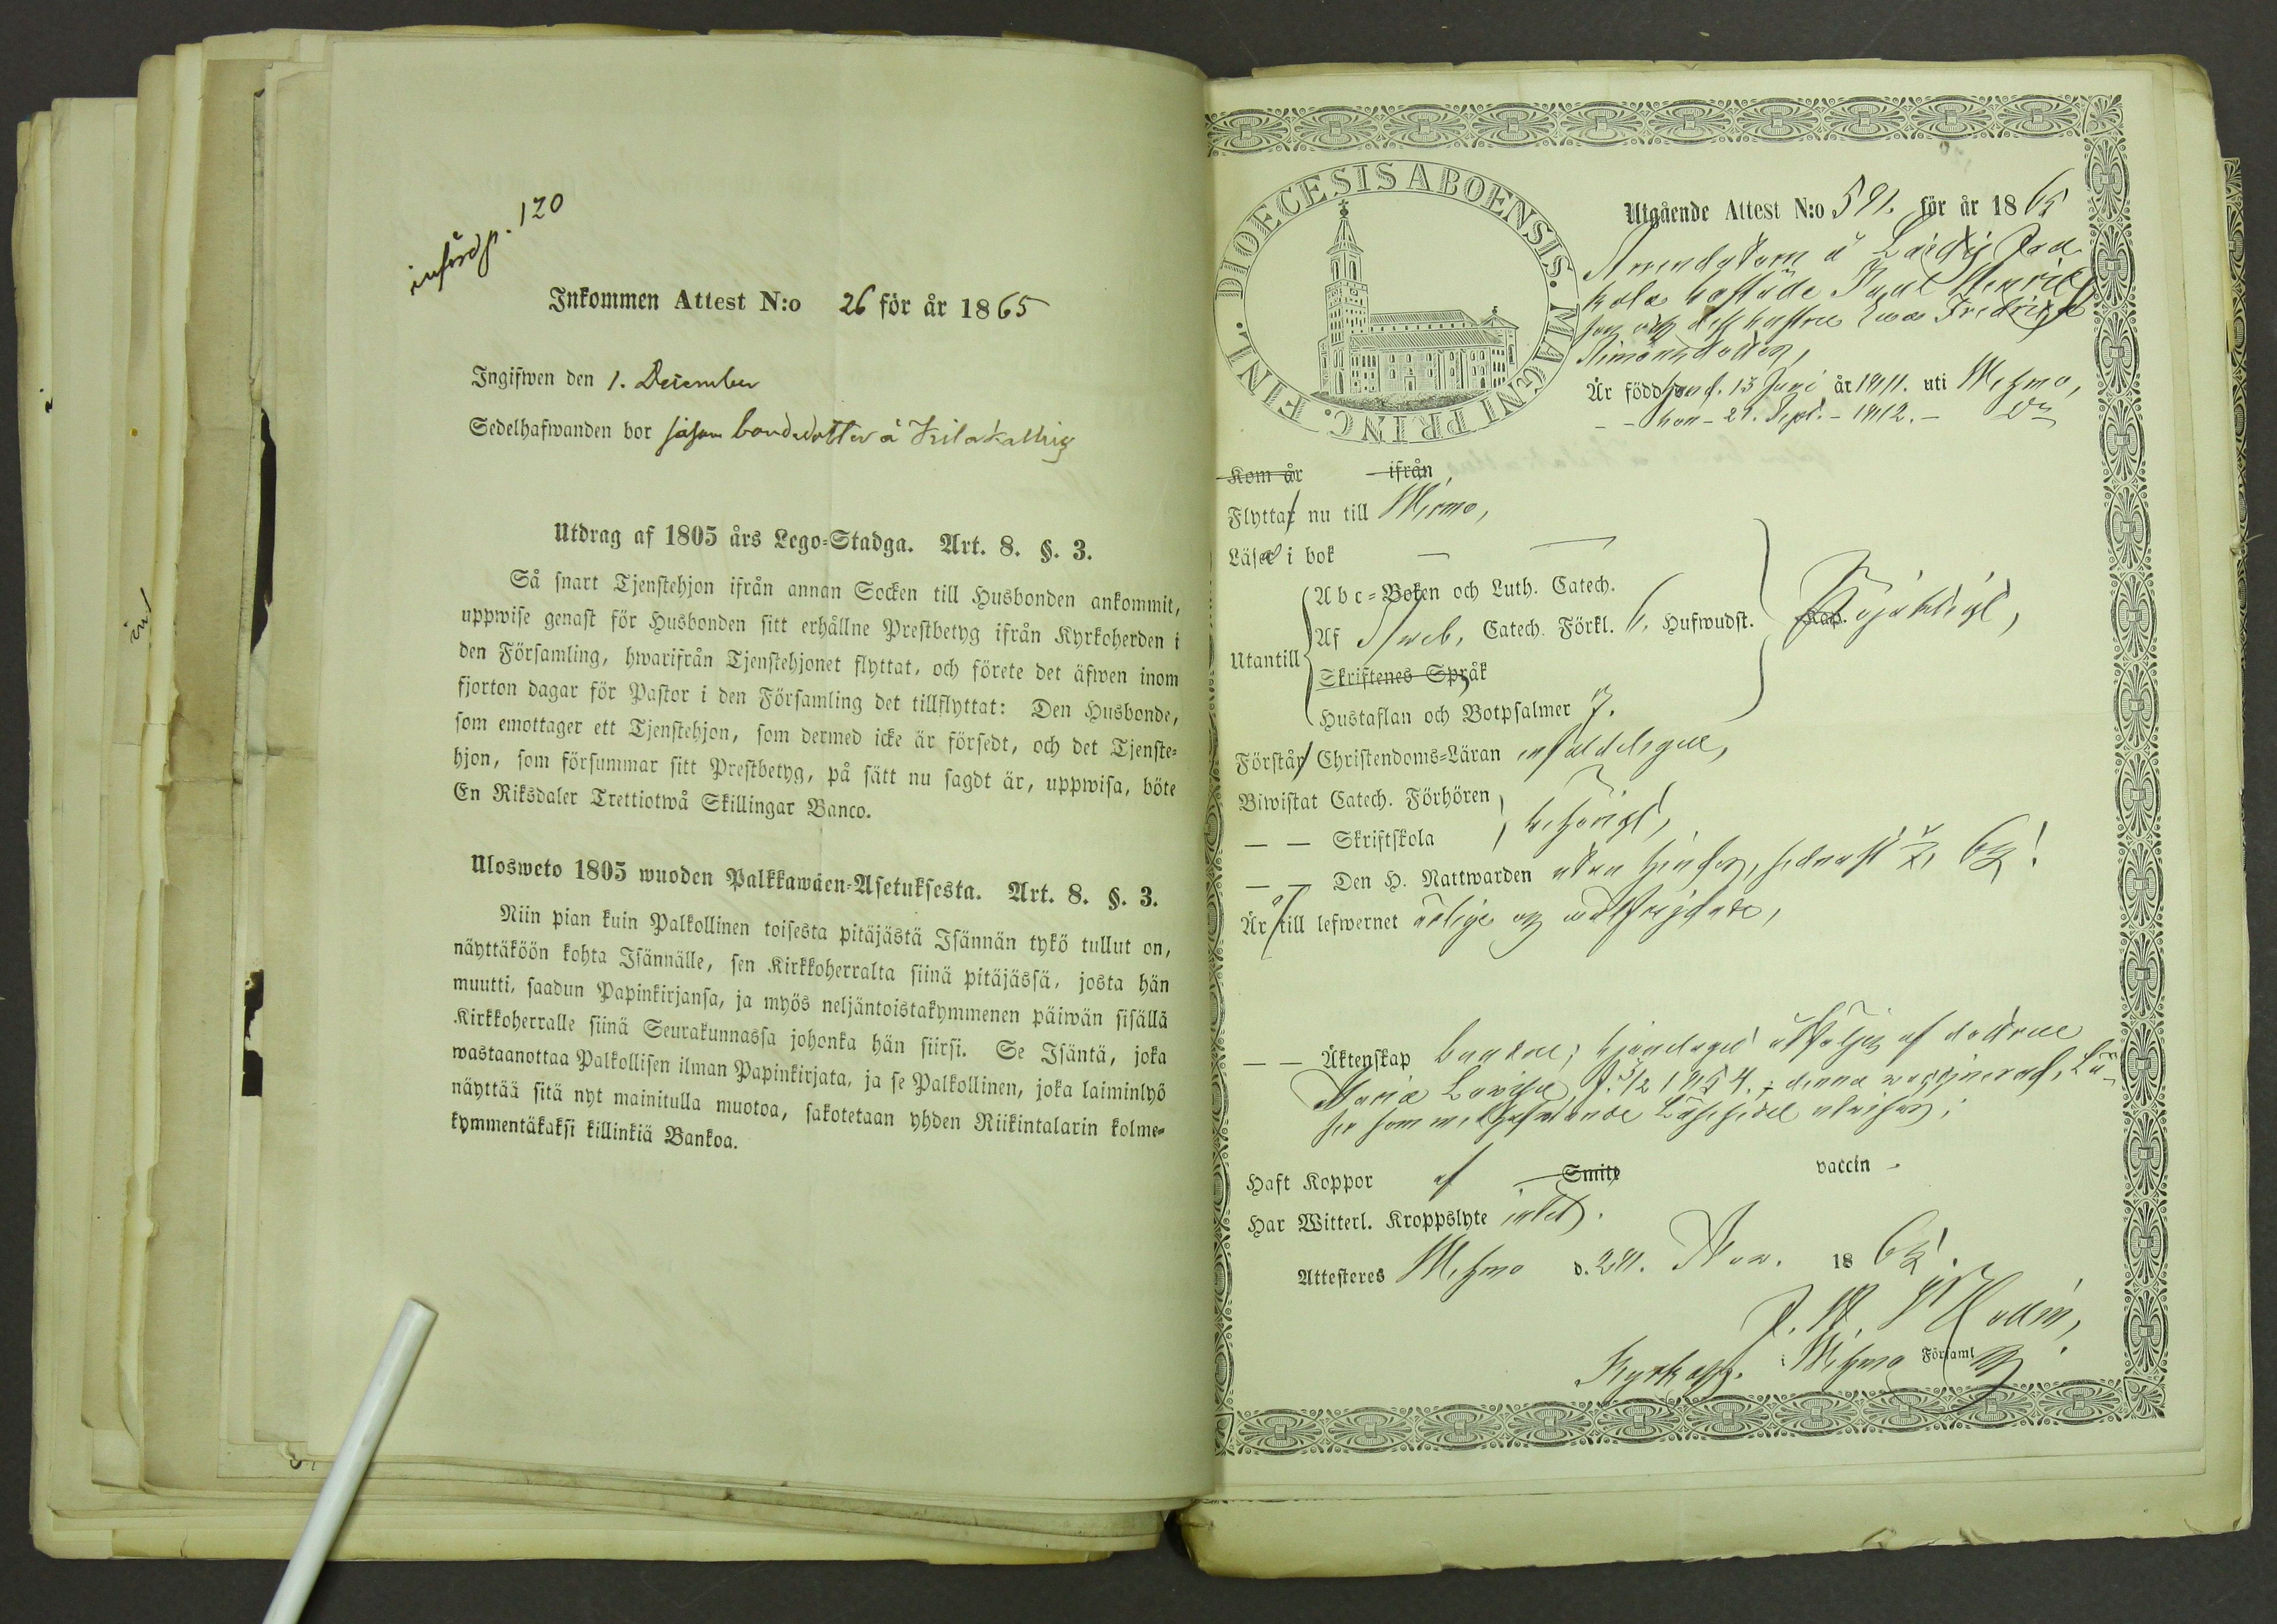 införd p. 120
Inkommen Attest N:o 26 för år 1865
Ingifwen den 1. December
Sedelhafwanden bor såsom bondedotter å
Utdrag af 1805 års Lego-Stadga. Art. 8. §. 3.
Så snart Tjenstehjon ifrån annan Socken till Husbonden ankommit,
uppwise genast för Husbonden sitt erhållne Prestbetyg ifrån Kyrkoherden i
den Församling, hwarifrån Tjenstehjonet flyttat, och förete det äfwen inom
fjorton dagar för Pastor i den Församling det tillflyttat: Den Husbonde,
som emottager ett Tjenstehjon, som dermed icke är försedt, och det Tjenste-
hjon, som försummar sitt Prestbetyg, på sätt nu sagdt är, uppwisa, böte
En Riksdaler Trettiotwå Skillingar Banco.
Ulosweto 1805 wuoden Palkkawäen-Asetuksesta. Art. 8. §. 3.
Niin pian kuin Palkollinen toisesta pitäjästä Isännän tykö tullut on,
näyttäköön kohta Isännälle, sen Kirkkoherralta siinä pitäjässä, josta hän
muutti, saadun Papinkirjansa, ja myös neljäntoistakymmenen päiwän sisällä
Kirkkoherralle siinä Seurakunnassa johonka hän siirsi. Se Isäntä, joka
wastaanottaa Palkollisen ilman Papinkirjata, ja se Palkollinen, joka laiminlyö
näyttää sitä nyt mainitulla muotoa, sakotetaan yhden Riikintalarin kolme-
kymmentäkaksi killinkiä Bankoa.
DIOECESIS ABOENSIS. MAGNI PRINC. FINL.
Utgående Attest N:o 591. för år 1865
å
Henrics
son och dess hustru Eva Fredrica
Simonsdotter,
Är född han d. 13 Juni år 1811. uti Wehmo,
- - hon - 21. Sept. - 1812. - Do
Kom år ifrån
Flyttar nu till
Läser i bok
Abc-Boken och Luth. Catech.
Utantill Af Sweb. Catech. Förkl. 6. Hufwudst. Kap.
Skriftenes Språk
Hustaflan och Botpsalmer 7.
Förstår Christendoms-Läran enfaldeligen,
Biwistat Catech. Förhören
— — Skriftskola behörigt,
— — Den H. Nattwarden utan hinder, sednast
Är till lefwernet ärlige och
— — Äktenskap af dottren
Maria Lovisa, f. 1854.
Haft Koppor af Smitt vaccin
Har Witterl. Kroppslyte intet.
Attesteres Wehmo d. 28. Nov. 1865.
i Wehmo Församl